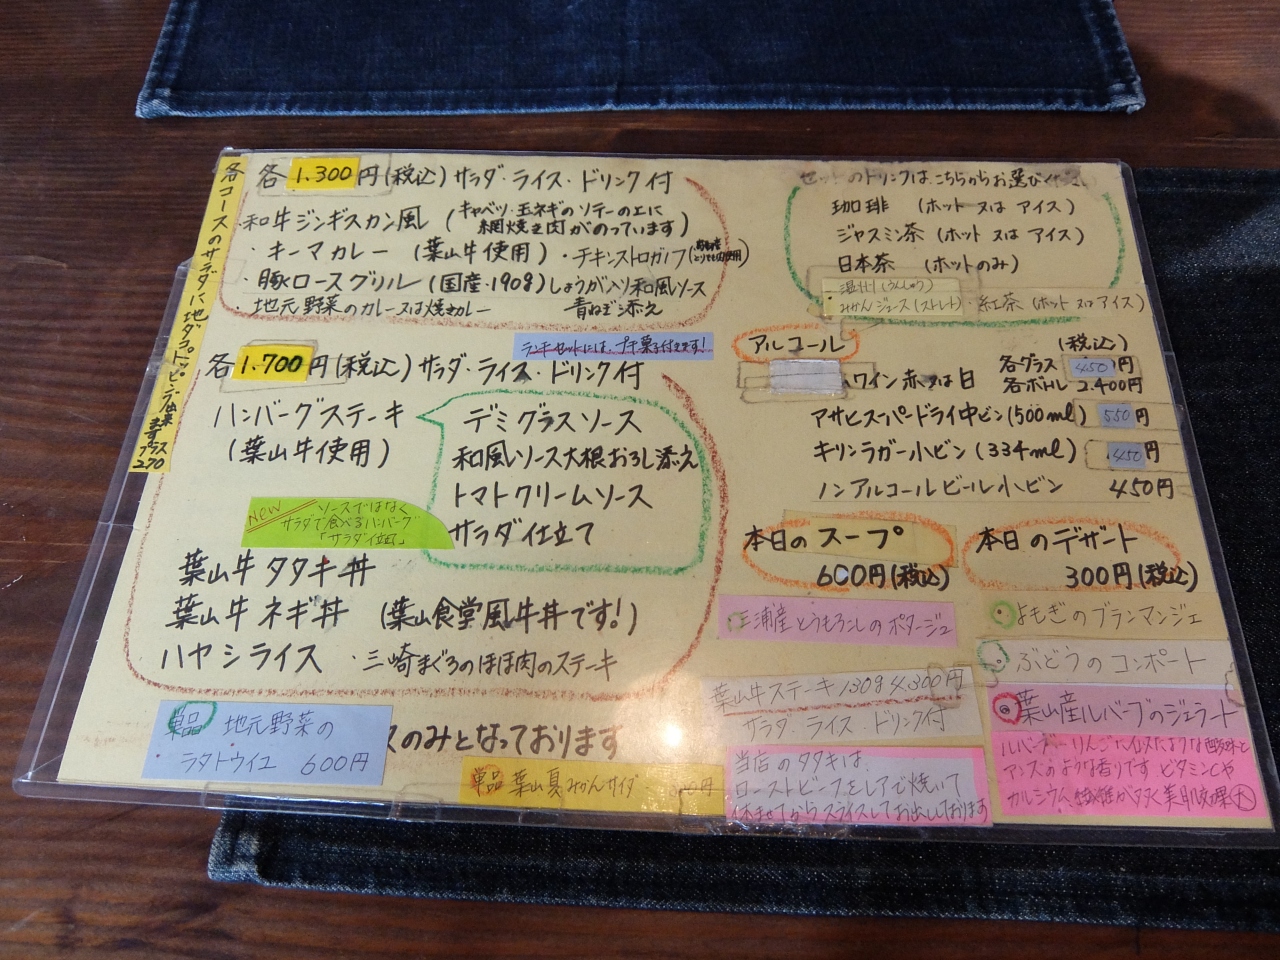 各コースのサラダに地ダコトッピング出来ます プラス270
各 1.300円(税込) サラダ・ライス・ドリンク付
和牛ジンギスカン風 (キャベツ・玉ネギのソテーの上に
網焼き肉がのっています)
・キーマカレー (葉山牛使用) ・チキンストロガノフ
・豚ロースグリル (国産・190g) しょうが入り和風ソース
・地元野菜のカレー又は焼きカレー 青ねぎ添え
ランチセットには、プチ菓子付きます!
各 1.700円(税込) サラダ・ライス・ドリンク付
ハンバーグステーキ
(葉山牛使用)
デミグラスソース
和風ソース大根おろし添え
トマトクリームソース
サラダ仕立て
NEW ソースではなく
サラダで食べるハンバーグ
「サラダ仕立て」
葉山牛タタキ丼
葉山牛ネギ丼 (葉山食堂風牛丼です!)
ハヤシライス ・三崎まぐろのほほ肉のステーキ
単品 地元野菜の
ラタトウイユ 600円
スのみとなっております
単品 葉山夏みかんサイダー 円
セットのドリンクは、こちらからお選びください
珈琲 (ホット又はアイス)
ジャスミン茶 (ホット又はアイス)
日本茶 (ホットのみ)
・温州(うんしゅう)
みかんジュース(ストレート)・紅茶 (ホット又はアイス)
アルコール
(税込)
ワイン赤又は白 各グラス 450円
各ボトル 2.400円
アサヒスーパードライ中ビン(500ml) 550円
キリンラガー小ビン(334ml) 450円
ノンアルコールビール小ビン 450円
本日のスープ
600円(税込)
三浦産とうもろこしのポタージュ
葉山牛ステーキ130g 4.300円
サラダ ライス ドリンク付
当店のタタキは、
ローストビーフをレアで焼いて
休ませてからスライスしてお出ししております
本日のデザート
300円(税込)
よもぎのブランマンジェ
ぶどうのコンポート
葉山産ルバーブのジェラート
ルバーブ…りんごに似たような酸味と
アンズのような香りです ビタミンCや
カルシウム、繊維が多く美肌効果大